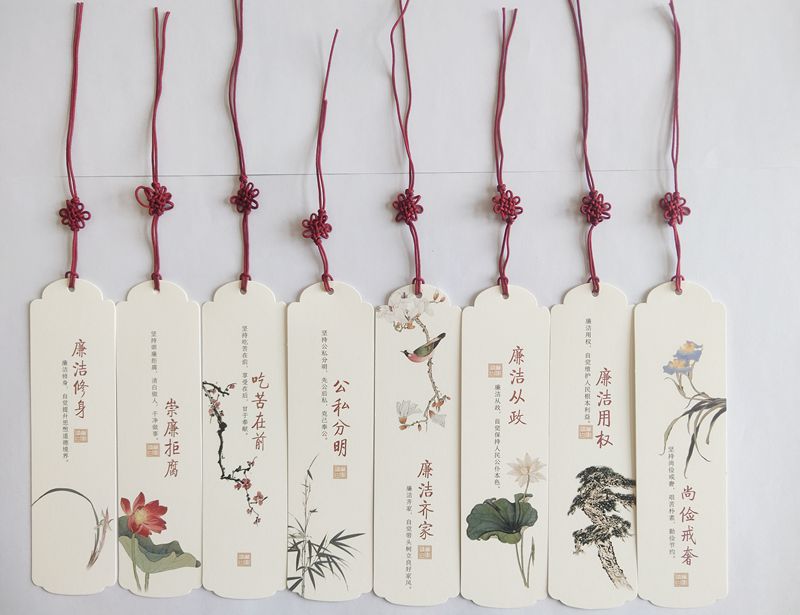 廉洁修身
廉洁修身，自觉提升思想道德境界。
崇廉拒腐
坚持崇廉拒腐，清白做人，干净做事。
吃苦在前
坚持吃苦在前，享受在后，甘于奉献。
公私分明
坚持公私分明，先公后私，克己奉公。
廉洁齐家
廉洁齐家，自觉带头树立良好家风。
廉洁从政
廉洁从政，自觉保持人民公仆本色。
廉洁用权
廉洁用权，自觉维护人民根本利益。
尚俭戒奢
坚持尚俭戒奢，艰苦朴素，勤俭节约。